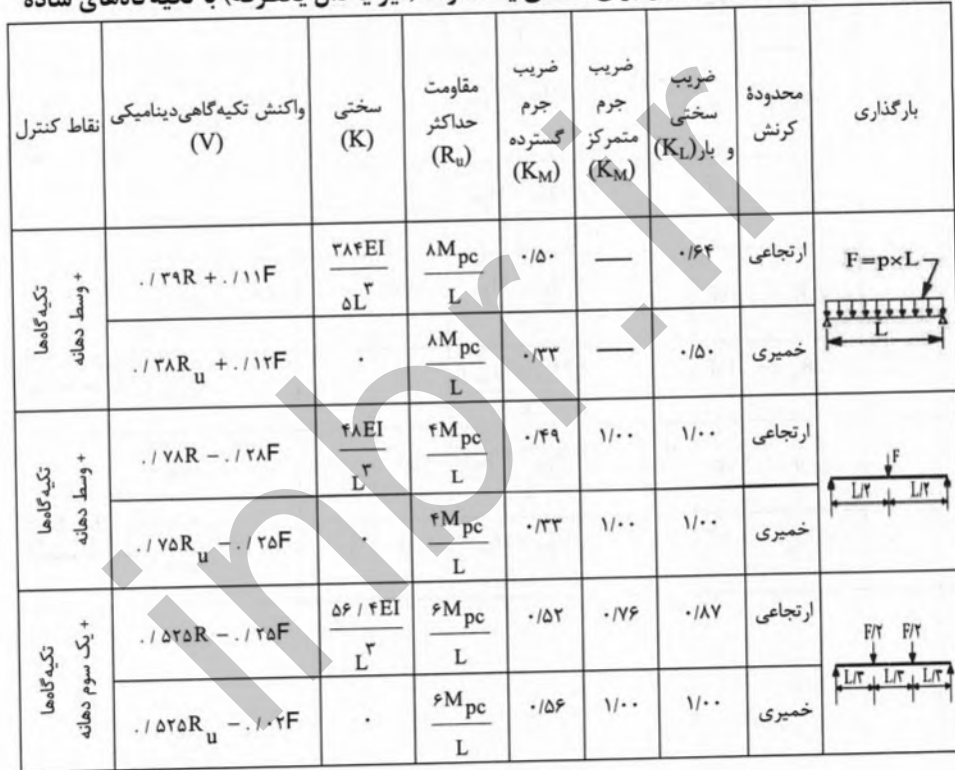 بارگذاری | محدودهٔ کرنش | ضریب سختی و بار (K_L) | ضریب جرم متمرکز (K_M) | ضریب جرم گسترده (K_M) | مقاومت حداکثر (R_u) | سختی (K) | واکنش تکیه‌گاهی دینامیکی (V) | نقاط کنترل
F=p×L L | ارتجاعی | ۰/۶۴ | — | ۰/۵۰ | ۸M_pc / L | ۳۸۴EI / ۵L^۳ | ۰/۳۹R + ۰/۱۱F | تکیه‌گاهها + وسط دهانه
خمیری | ۰/۵۰ | — | ۰/۳۳ | ۸M_pc / L | ۰ | ۰/۳۸R_u + ۰/۱۲F
F L/۲ L/۲ | ارتجاعی | ۱/۰۰ | ۱/۰۰ | ۰/۴۹ | ۴M_pc / L | ۴۸EI / L^۳ | ۰/۷۸R − ۰/۲۸F | تکیه‌گاهها + وسط دهانه
خمیری | ۱/۰۰ | ۱/۰۰ | ۰/۳۳ | ۴M_pc / L | ۰ | ۰/۷۵R_u − ۰/۲۵F
F/۲ F/۲ L/۳ L/۳ L/۳ | ارتجاعی | ۰/۸۷ | ۰/۷۶ | ۰/۵۲ | ۶M_pc / L | ۵۶/۴EI / L^۳ | ۰/۵۲۵R − ۰/۲۵F | تکیه‌گاهها + یک سوم دهانه
خمیری | ۱/۰۰ | ۱/۰۰ | ۰/۵۶ | ۶M_pc / L | ۰ | ۰/۵۲۵R_u − ۰/۰۲F
inbr.ir